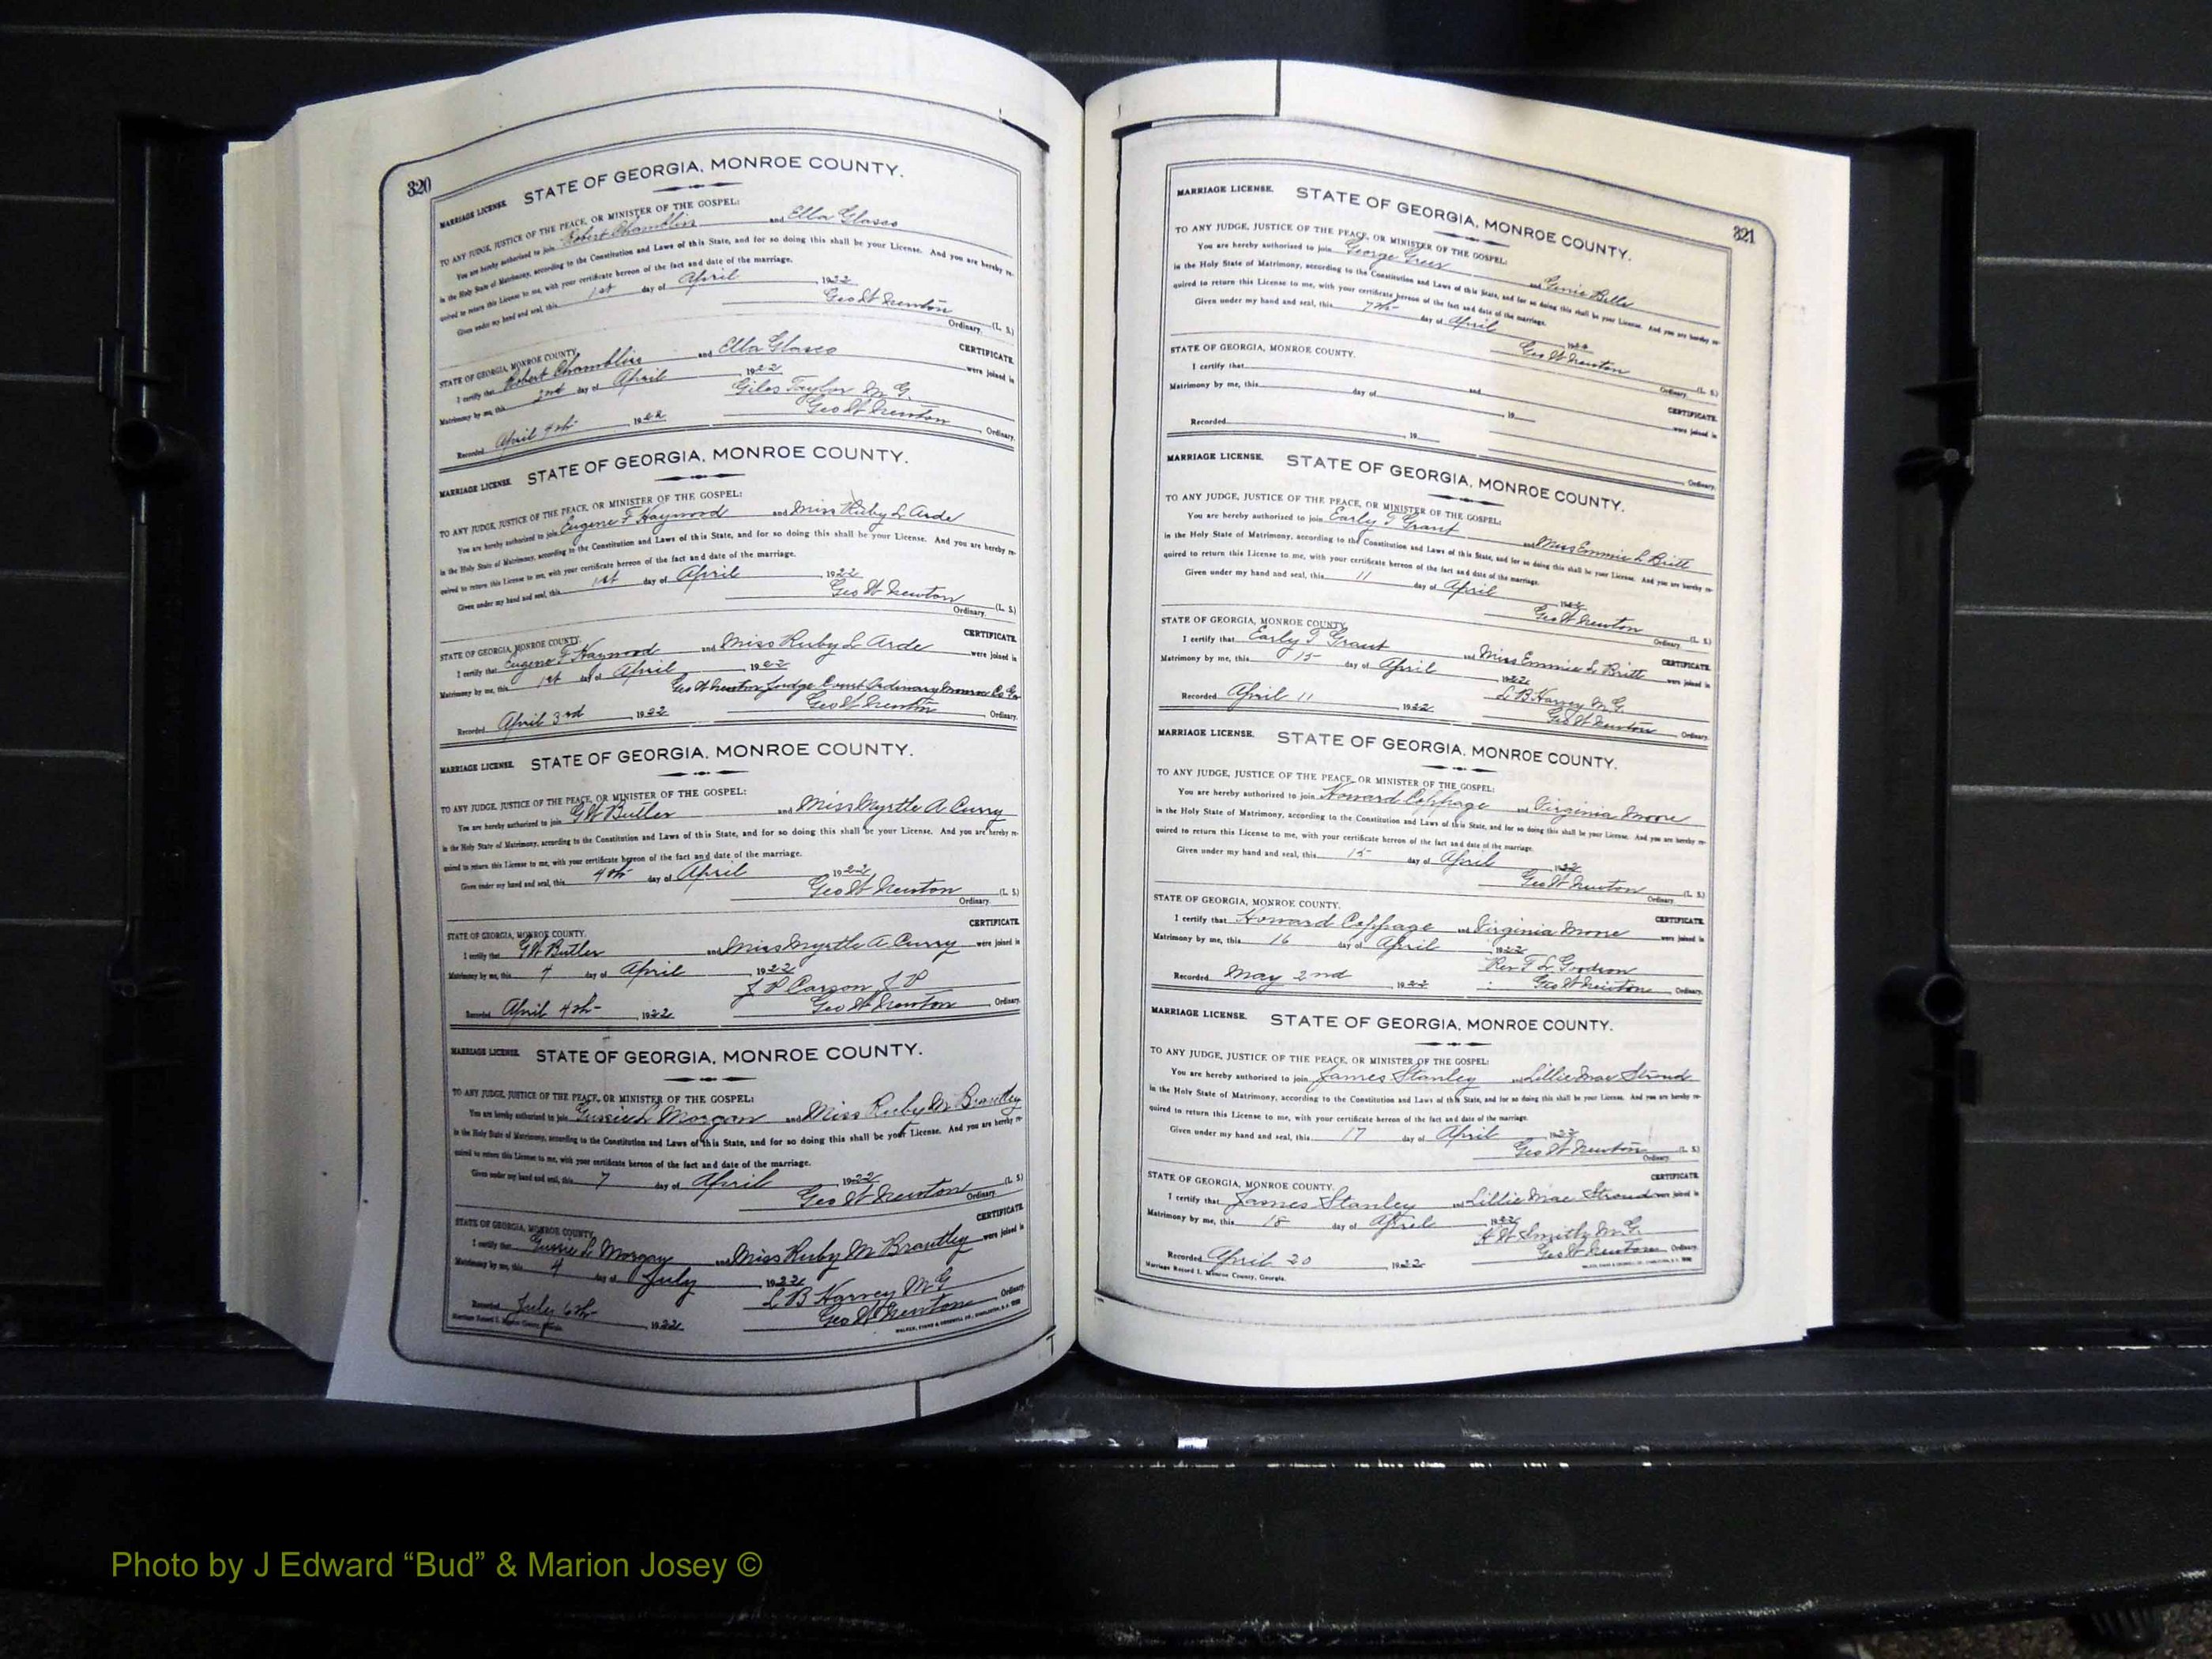 320
MARRIAGE LICENSE. STATE OF GEORGIA, MONROE COUNTY.
TO ANY JUDGE, JUSTICE OF THE PEACE, OR MINISTER OF THE GOSPEL:
You are hereby authorized to join Robert Chamblin and Ella Glasco
in the Holy State of Matrimony, according to the Constitution and Laws of this State, and for so doing this shall be your License. And you are hereby re-
quired to return this License to me, with your certificate hereon of the fact and date of the marriage.
Given under my hand and seal, this 1st day of April, 1922
Geo W Newton (L. S.)
Ordinary.
STATE OF GEORGIA, MONROE COUNTY. CERTIFICATE.
I certify that Robert Chamblin and Ella Glasco were joined in
Matrimony by me, this 2nd day of April 1922
Giles Taylor M G.
Recorded April 4th 1922 Geo W Newton, Ordinary.
MARRIAGE LICENSE. STATE OF GEORGIA, MONROE COUNTY.
TO ANY JUDGE, JUSTICE OF THE PEACE, OR MINISTER OF THE GOSPEL:
You are hereby authorized to join Eugene F Haywood and Miss Ruby L Arde
in the Holy State of Matrimony, according to the Constitution and Laws of this State, and for so doing this shall be your License. And you are hereby re-
quired to return this License to me, with your certificate hereon of the fact and date of the marriage.
Given under my hand and seal, this 1st day of April, 1922
Geo W Newton (L. S.)
Ordinary.
STATE OF GEORGIA, MONROE COUNTY. CERTIFICATE.
I certify that Eugene F Haywood and Miss Ruby L Arde were joined in
Matrimony by me, this 1st day of April, 1922
Geo W Newton Judge Court Ordinary Monroe Co Ga
Recorded April 3rd, 1922 Geo W Newton Ordinary.
MARRIAGE LICENSE. STATE OF GEORGIA, MONROE COUNTY.
TO ANY JUDGE, JUSTICE OF THE PEACE, OR MINISTER OF THE GOSPEL:
You are hereby authorized to join G W Butler and Miss Myrtle A Curry
in the Holy State of Matrimony, according to the Constitution and Laws of this State, and for so doing this shall be your License. And you are hereby re-
quired to return this License to me, with your certificate hereon of the fact and date of the marriage.
Given under my hand and seal, this 4th day of April, 1922
Geo W Newton (L. S.)
Ordinary.
STATE OF GEORGIA, MONROE COUNTY. CERTIFICATE.
I certify that G W Butler and Miss Myrtle A Curry were joined in
Matrimony by me, this 4 day of April, 1922
J P Carson J P
Recorded April 4th, 1922 Geo W Newton, Ordinary.
MARRIAGE LICENSE. STATE OF GEORGIA, MONROE COUNTY.
TO ANY JUDGE, JUSTICE OF THE PEACE, OR MINISTER OF THE GOSPEL:
You are hereby authorized to join Gussie L Morgan and Miss Ruby M Brantley
in the Holy State of Matrimony, according to the Constitution and Laws of this State, and for so doing this shall be your License. And you are hereby re-
quired to return this License to me, with your certificate hereon of the fact and date of the marriage.
Given under my hand and seal, this 7 day of April, 1922
Geo W Newton (L. S.)
Ordinary.
STATE OF GEORGIA, MONROE COUNTY. CERTIFICATE.
I certify that Gussie L Morgan and Miss Ruby M Brantley were joined in
Matrimony by me, this 4 day of July, 1922
L B Harvey M G
Recorded July 6th, 1922 Geo W Newton Ordinary.
321
MARRIAGE LICENSE. STATE OF GEORGIA, MONROE COUNTY.
TO ANY JUDGE, JUSTICE OF THE PEACE, OR MINISTER OF THE GOSPEL:
You are hereby authorized to join George Greer and Genie Bell
in the Holy State of Matrimony, according to the Constitution and Laws of this State, and for so doing this shall be your License. And you are hereby re-
quired to return this License to me, with your certificate hereon of the fact and date of the marriage.
Given under my hand and seal, this 7th day of April 1922
Geo W Newton (L. S.)
Ordinary.
STATE OF GEORGIA, MONROE COUNTY. CERTIFICATE.
I certify that and were joined in
Matrimony by me, this day of, 19
Recorded, 19 Ordinary.
MARRIAGE LICENSE. STATE OF GEORGIA, MONROE COUNTY.
TO ANY JUDGE, JUSTICE OF THE PEACE, OR MINISTER OF THE GOSPEL:
You are hereby authorized to join Early T Grant and Miss Emmie L Britt
in the Holy State of Matrimony, according to the Constitution and Laws of this State, and for so doing this shall be your License. And you are hereby re-
quired to return this License to me, with your certificate hereon of the fact and date of the marriage.
Given under my hand and seal, this 11 day of April 1922
Geo W Newton (L. S.)
Ordinary.
STATE OF GEORGIA, MONROE COUNTY. CERTIFICATE.
I certify that Early T Grant and Miss Emmie L Britt were joined in
Matrimony by me, this 15 day of April 1922
L B Harvey M G.
Recorded April 11, 1922 Geo W Newton, Ordinary.
MARRIAGE LICENSE. STATE OF GEORGIA, MONROE COUNTY.
TO ANY JUDGE, JUSTICE OF THE PEACE, OR MINISTER OF THE GOSPEL:
You are hereby authorized to join Howard Coppage and Virginia Moore
in the Holy State of Matrimony, according to the Constitution and Laws of this State, and for so doing this shall be your License. And you are hereby re-
quired to return this License to me, with your certificate hereon of the fact and date of the marriage.
Given under my hand and seal, this 15 day of April 1922
Geo W Newton (L. S.)
Ordinary.
STATE OF GEORGIA, MONROE COUNTY. CERTIFICATE.
I certify that Howard Coppage and Virginia Moore were joined in
Matrimony by me, this 16 day of April 1922
Rev F L Goodson
Recorded May 2nd, 1922 Geo W Newton, Ordinary.
MARRIAGE LICENSE. STATE OF GEORGIA, MONROE COUNTY.
TO ANY JUDGE, JUSTICE OF THE PEACE, OR MINISTER OF THE GOSPEL:
You are hereby authorized to join James Stanley and Lillie Mae Stroud
in the Holy State of Matrimony, according to the Constitution and Laws of this State, and for so doing this shall be your License. And you are hereby re-
quired to return this License to me, with your certificate hereon of the fact and date of the marriage.
Given under my hand and seal, this 17 day of April 1922
Geo W Newton (L. S.)
Ordinary.
STATE OF GEORGIA, MONROE COUNTY. CERTIFICATE.
I certify that James Stanley and Lillie Mae Stroud were joined in
Matrimony by me, this 18 day of April 1922
A W Smith M G.
Recorded April 20, 1922 Geo W Newton Ordinary.
Marriage Record I, Monroe County, Georgia.
Photo by J Edward “Bud” & Marion Josey ©